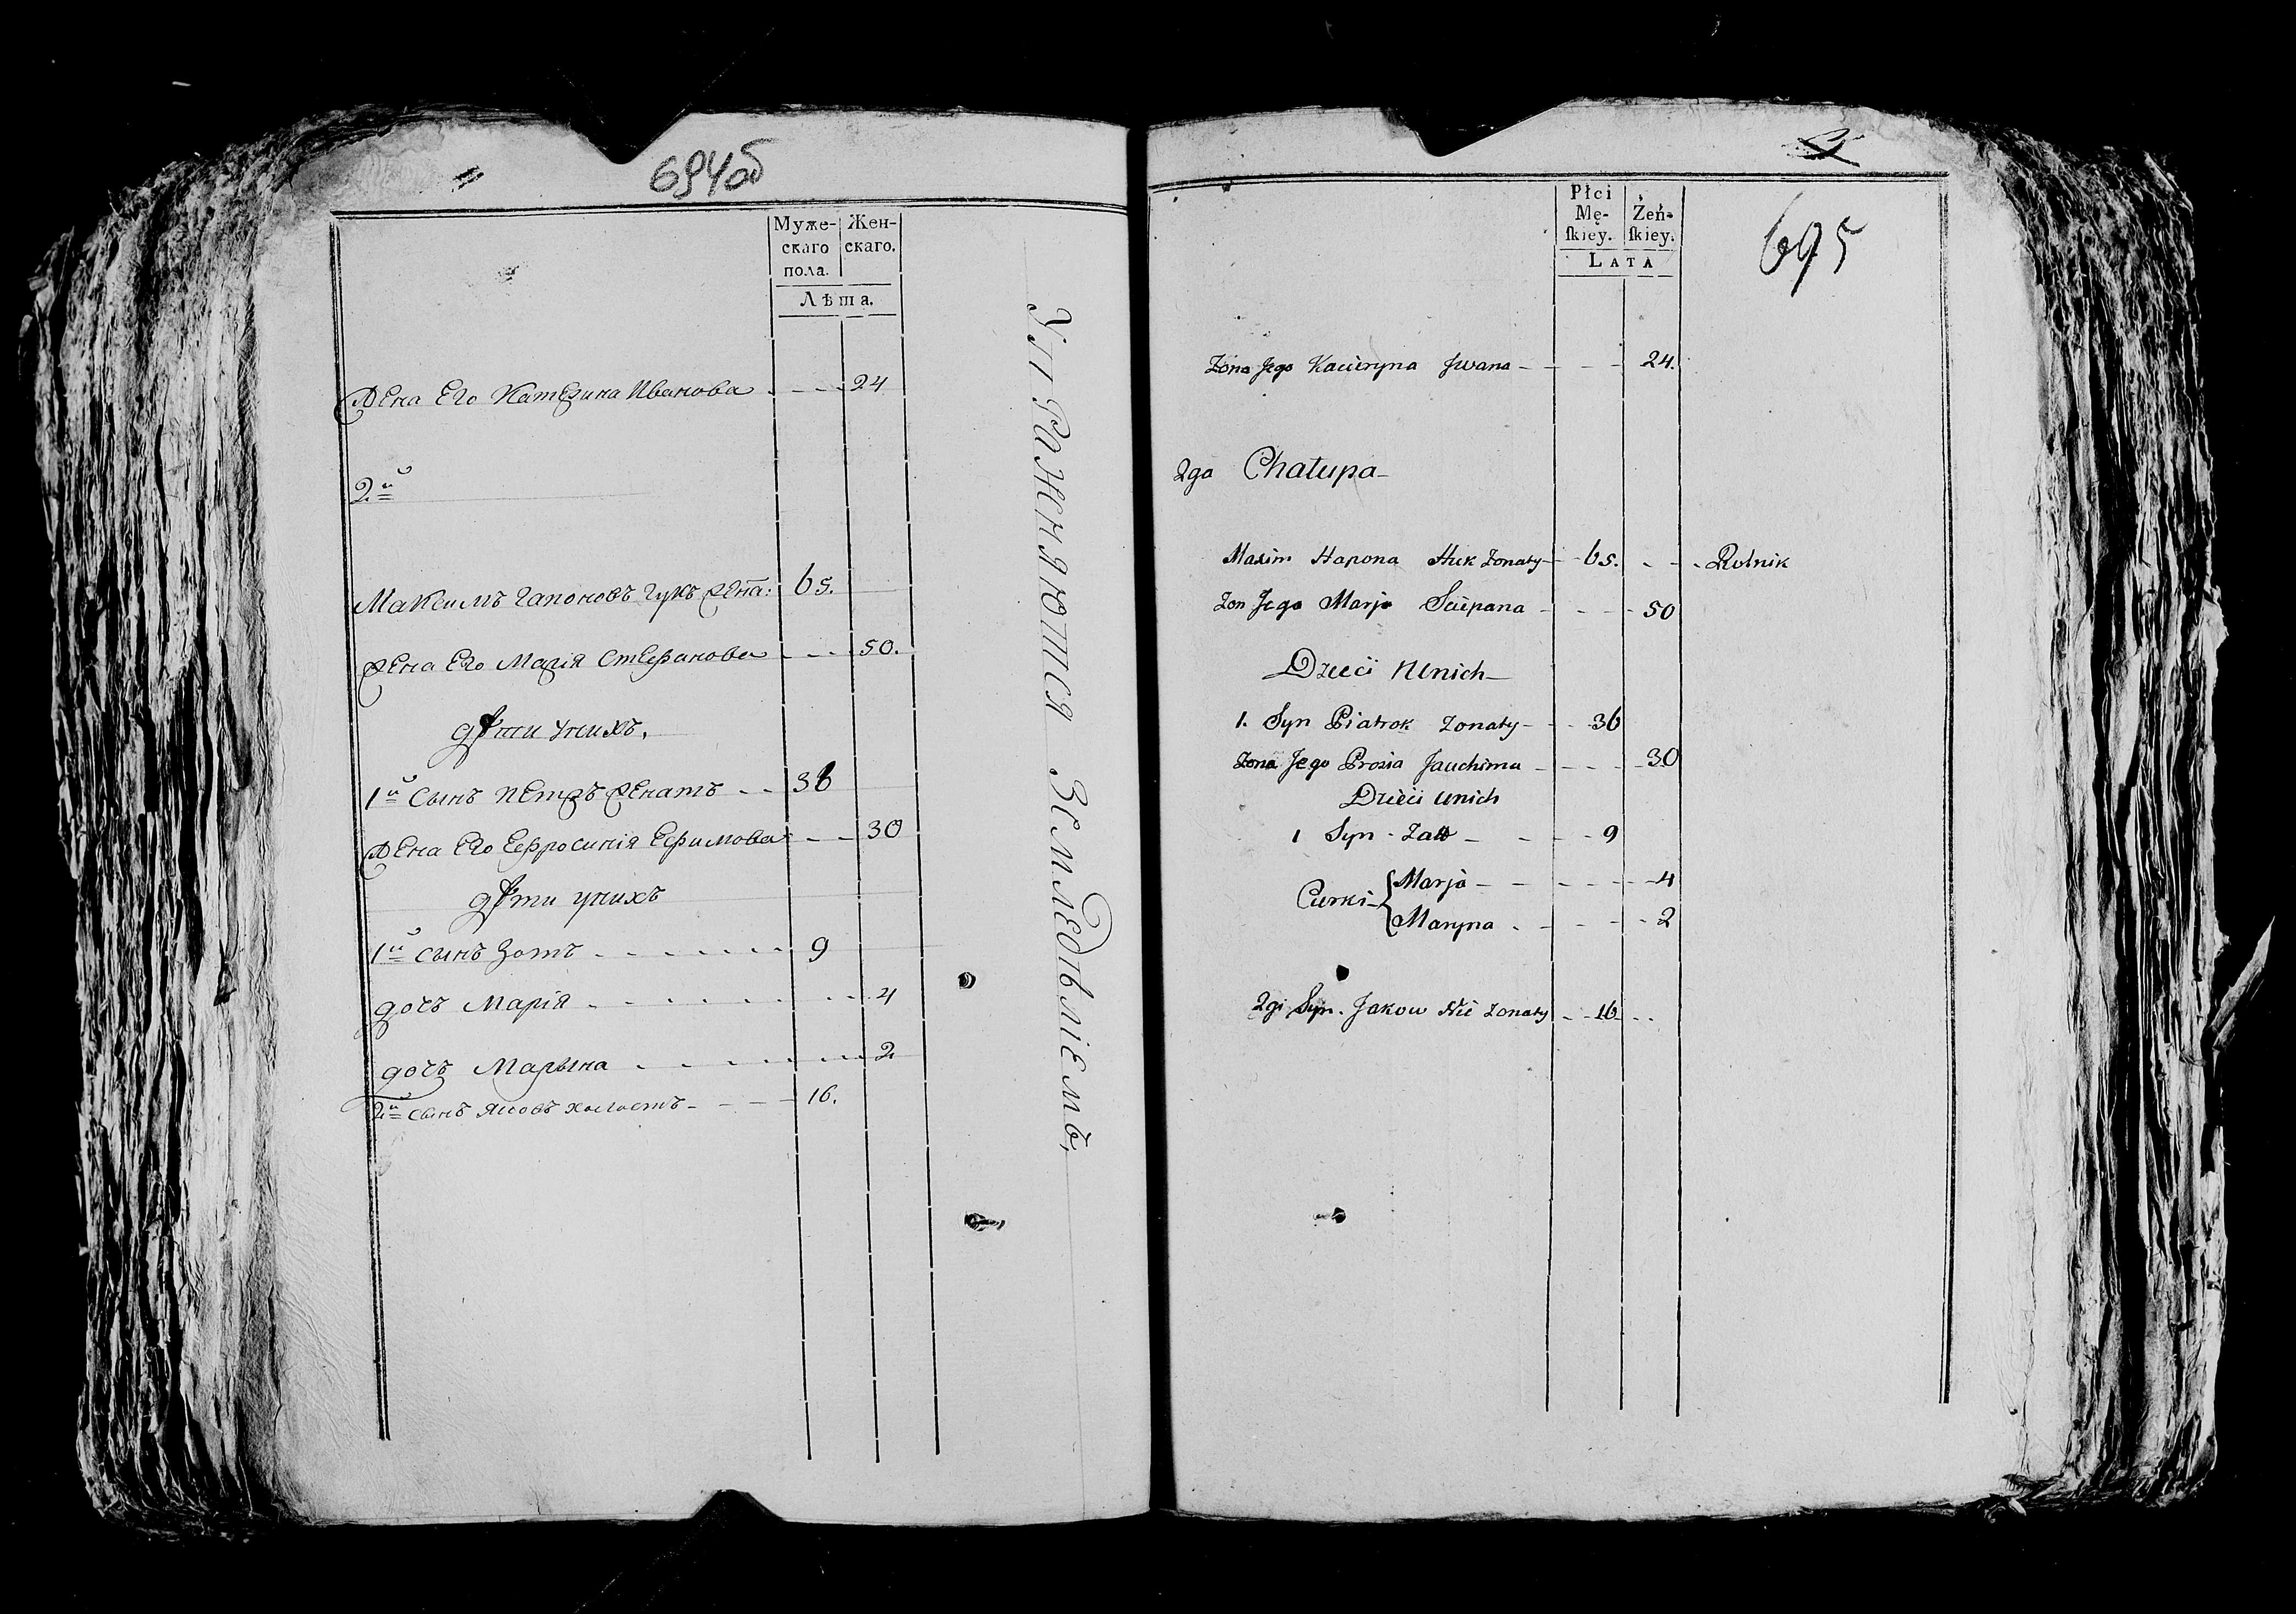 694об
Муже- Жен-
скаго скаго.
пола.
Лѣта.
Жена Его Катерина Иванова - - - 24
2й
Максимъ Гапоновъ Гукъ жена: 65.
жена Его Марія Стефанова - - - 50.
дѣти унихъ.
1й Сынъ Петръ женатъ - - 36
Жена Его Ефросинія Ефимова - - 30
дѣти унихъ
1й сынъ Зотъ - - - - - - 9
дочъ Марія - - - - - - - - 4
дочъ Марына - - - - - - 2
2й сынъ Яковъ холостъ - - - - 16.
Упражняются Земледѣліемъ,
Płci
Mę- Żeń-
ſkiey. ſkiey.
LATA
695
Zona Jego Kacieryna Jwana - - - - 24.
2ga Chałupa -
Maxim Hapona Huk Zonaty - - 65. - - - Rolnik
Zon Jego Marja Sciepana - - - - 50
Dzieci Unich -
1. Syn Piatrok Zonaty - - - 36
Zona Jego Prosia Jauchima - - - - - 30
Dzieci unich
1 Syn - Zatt - - - - 9
Curki - Marja - - - - - - 4
Maryna - - - - - 2
2gi Syn. Jakow Nie Zonaty - - 16 - -